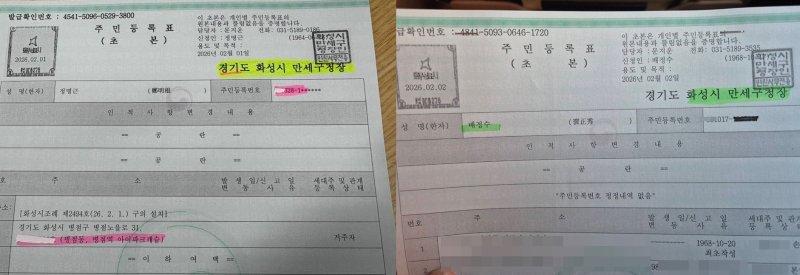 발급확인번호 : 4541-5096-0529-3800
주 민 등 록 표
( 초 본 )
이 초본은 개인별 주민등록표의
원본내용과 틀림없음을 증명합니다.
담당자 : 문지운 전화 : 031-5189-0186
신청인 :
용도 및 목적 :
2026년 02월 01일
2026.02.01
화성시
만세구
청장인
경기도 화성시 만세구청장
성 명(한자)
주민등록번호
인 적 사 항 변 경 내 용
== 공 란 ==
== 공 란 ==
주 소
발 생 일 / 신 고 일
변 동 사 유
세대주 및 관계
등 록 상 태
[화성시조례 제2494호(26. 2. 1.) 구의 설치]
경기도 화성시 병점구 병점노을로 31,
(병점동, 병점역 아이파크캐슬)
거주자
== 이 하 여 백 ==
발급확인번호 : 4841-5093-0646-1720
주 민 등 록 표
( 초 본 )
이 초본은 개인별 주민등록표의
원본내용과 틀림없음을 증명합니다.
담당자 : 문지운 전화 : 031-5189-3535
신청인 : 배정수 (1968-10
용도 및 목적 :
2026년 02월 02일
2026.02.02
화성시
만세구
청장인
경기도 화성시 만세구청장
성 명(한자)
배정수
(裵正秀)
주민등록번호
인 적 사 항 변 경 내 용
== 공 란 ==
"주민등록번호 정정내역 없음"
번호
주 소
발 생 일 / 신 고 일
변 동 사 유
세대주
등 록
1
1968-10-20
최초작성